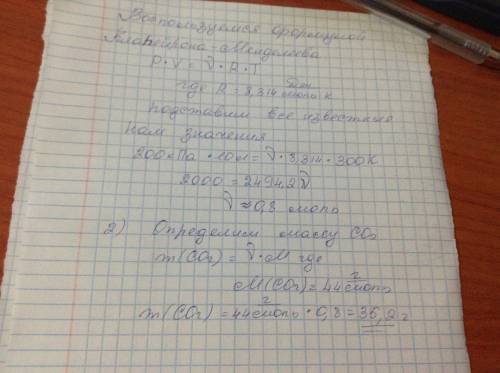 Воспользуемся формулой
Клапейрона-Менделеева
P·V=ν·R·T
где R=8,314 Дж/моль·К
Подставим все известные
нам значения
200кПа·10л=ν·8,314·300К
2000=2494,2ν
ν≈0,8 моль
2) Определим массу CO₂
m(CO₂)=ν·M где
M(CO₂)=44 г/моль
m(CO₂)=44 г/моль·0,8=35,2г